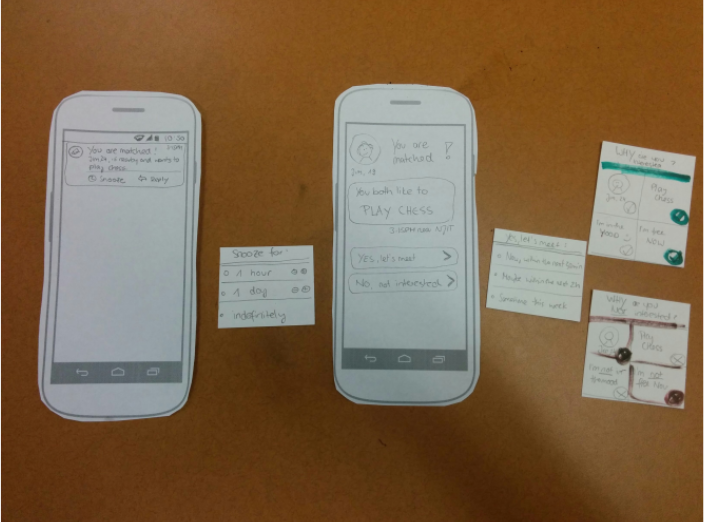 10:30
You are matched!
Jim, 18, is nearby and wants to
play chess.
Snooze
Reply
Snooze for:
1 hour
1 day
indefinitely
You are
matched!
Jim, 18
You both like to
PLAY CHESS
YES, let's meet >
NO, not interested >
Yes, let's meet!
Now, within the next
Maybe within the next
Sometime this week
WHY are you
?
Play
Chess
I'm
NOW!
WHY are you
NOT interested?
Play
Chess
I'm not
I'm not
NOW